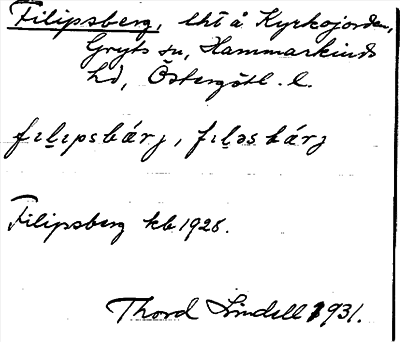 Filipsberg, lht å Kyrkojorden,
Gryts sn, Hammarkinds
hd, Östergötl. l.
fɪlɪpsbárj, fɪləsbárj
Filipsberg kb 1926.
Thord Lindell 1931.